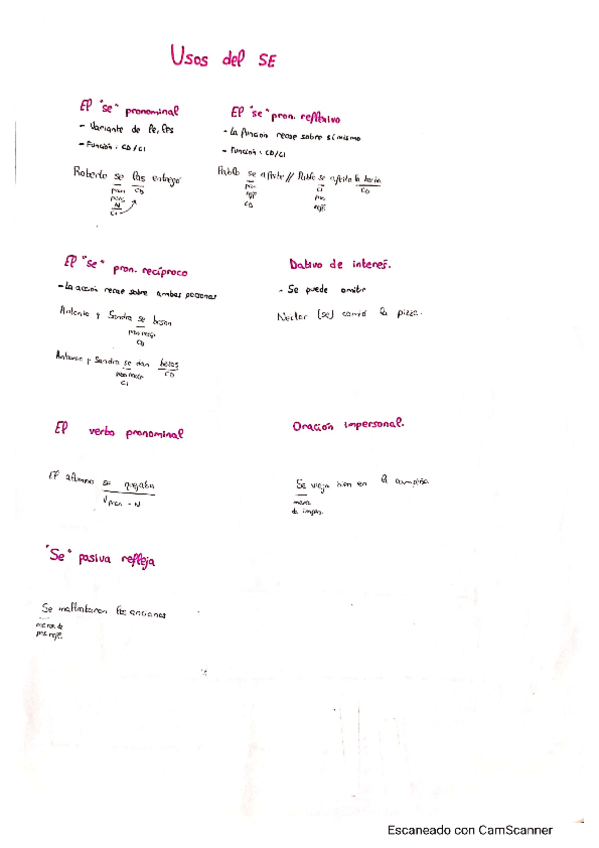 Usos del SE
El "se" pronominal
- Variante de le, les
- Función: CD/CI
Roberto se las entregó
pron.
pers.
N
CI
CD
El "se" pron. reflexivo
- La función recae sobre sí mismo
- Función: CD/CI
Pablo se afeita // Pablo se afeita la barba
pron
refl
CD
CI
pron
refl.
CD
El "se" pron. recíproco
- La acción recae sobre ambas personas
Antonio y Sandra se besan
pron recip.
CD
Antonio y Sandra se dan besos
pron recip
CI
CD
Dativo de interés.
- Se puede omitir
Néctor (se) comió la pizza.
El verbo pronominal
El alumno se quejaba
V pron - N
Oración impersonal.
Se viaja bien en la
marca
de impers.
"Se" pasiva refleja
Se maltrataron los ancianos
marca de
pas. refl.
Escaneado con CamScanner